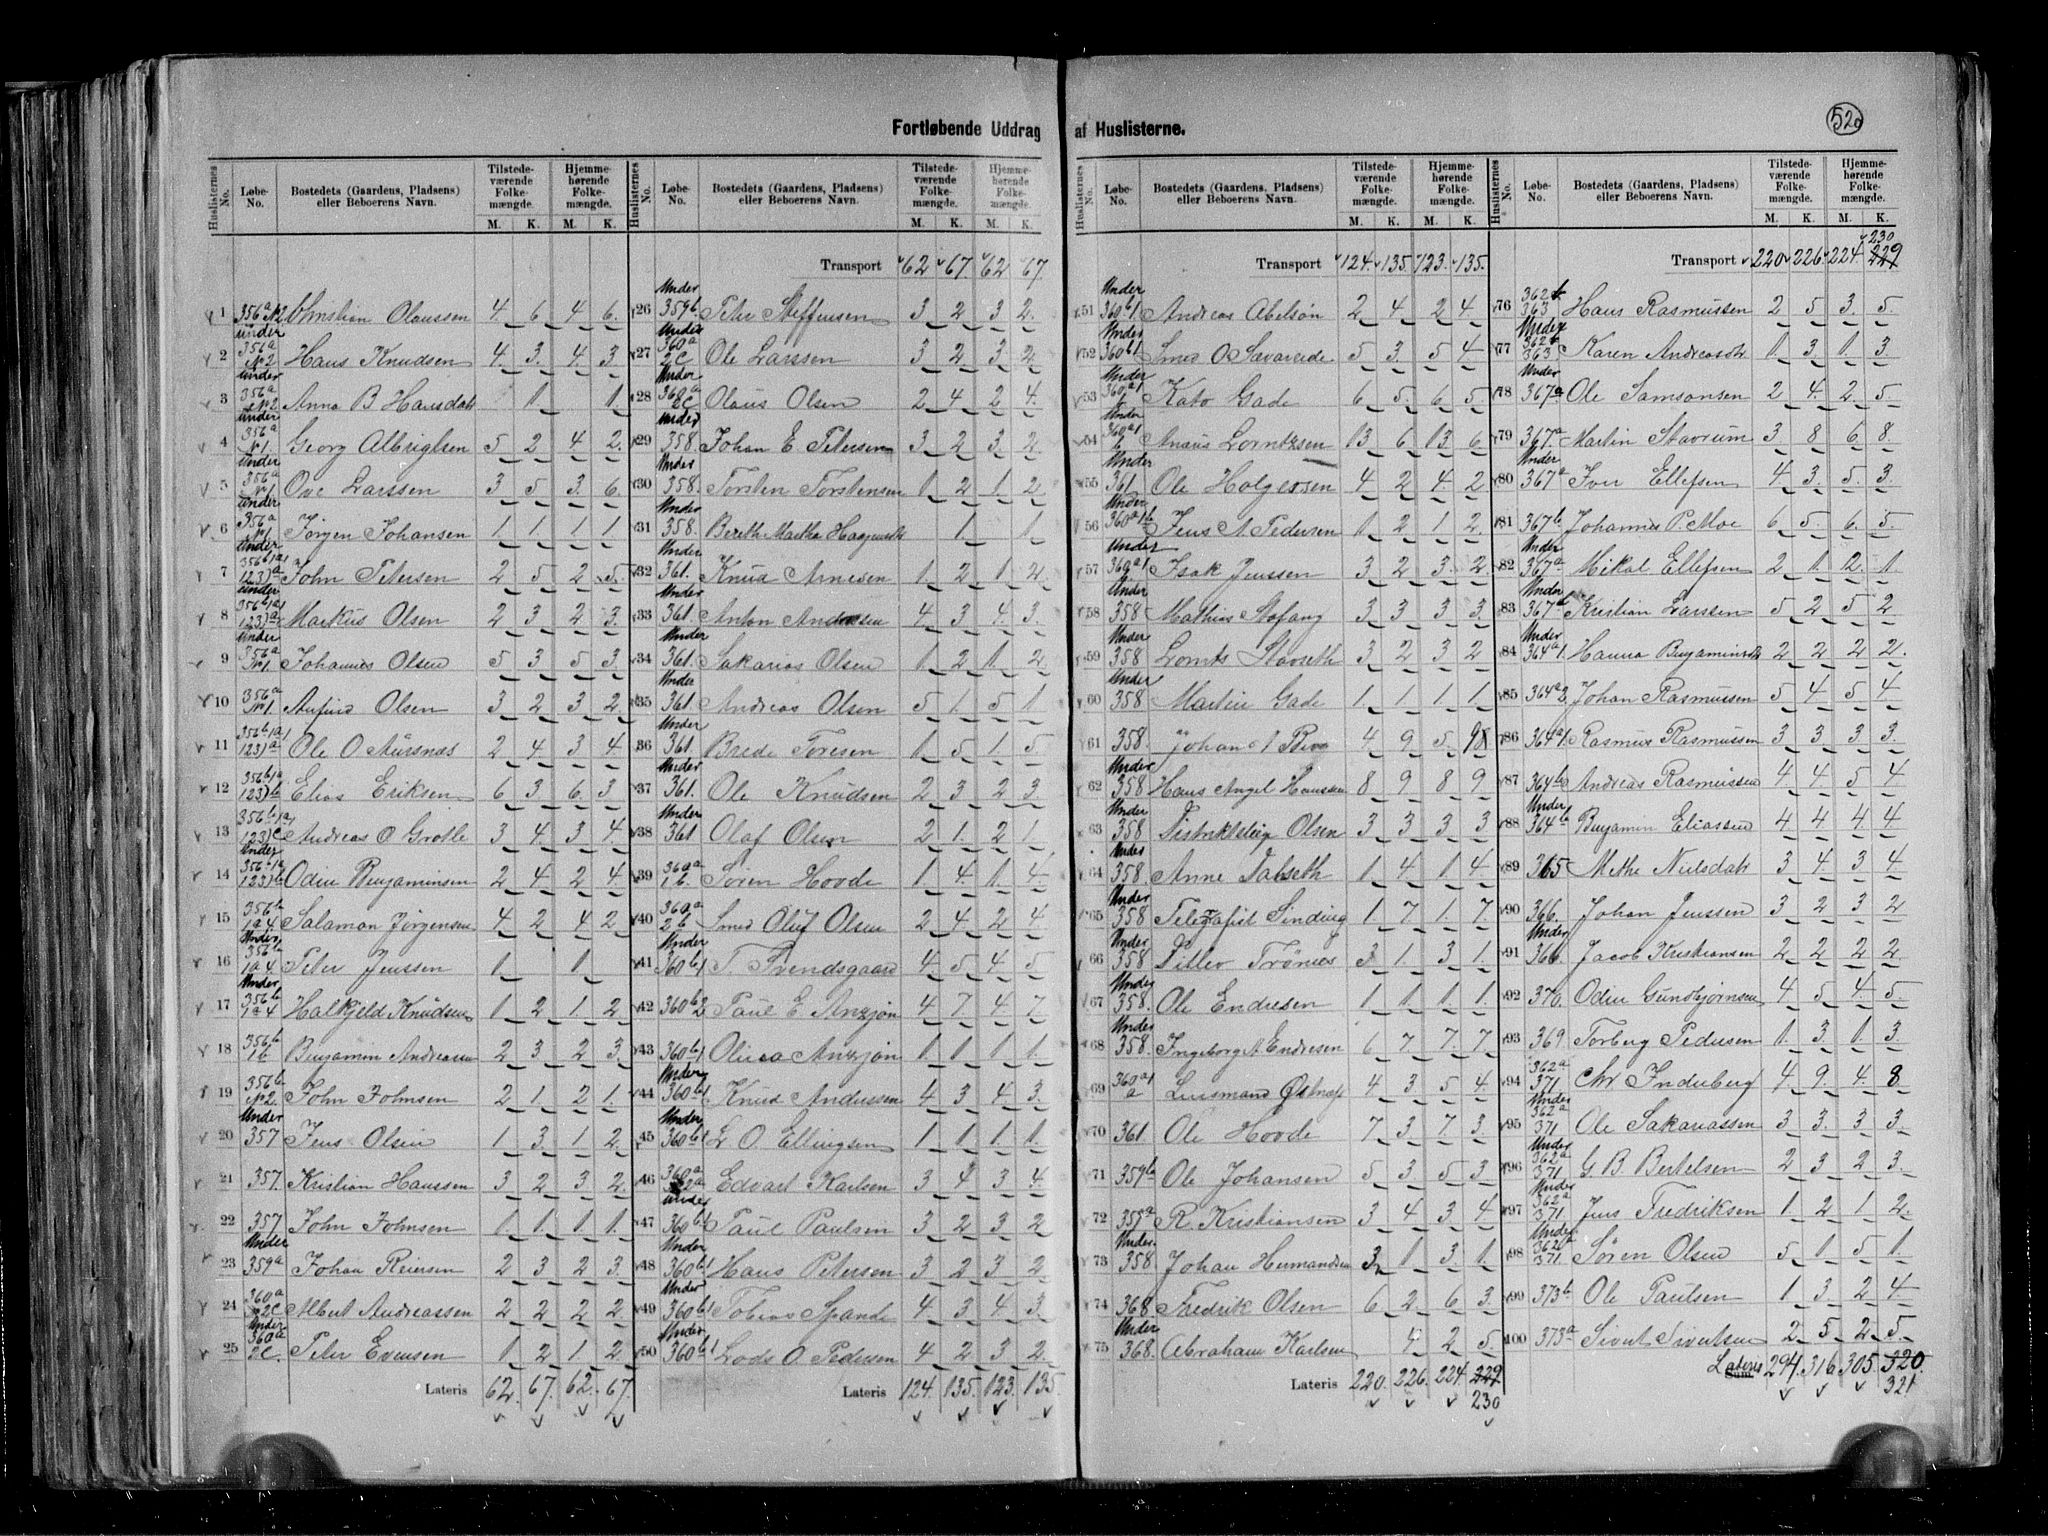 Fortløbende Uddrag af Huslisterne.
520
Huslisternes No. Løbe-No. Bostedets (Gaardens, Pladsens) eller Beboerens Navn. Tilstedeværende Folkemængde. M. K. Hjemmehørende Folkemængde. M. K.
1 356a N2 Christian Olaussen 4 6 4 6
2 Under 356a N2 Hans Knudsen 4 3 4 3
3 Under 356a N2 Anna B Hansdatr 1 1
4 Under 356a N1 Georg Albrigtsen 5 2 4 2
5 Under 356a N1 Ove Larssen 3 5 3 6
6 Under 356a N1 Jørgen Johansen 1 1 1 1
7 Under John Petersen 2 5 2 5
8 Under Markus Olsen 2 3 2 3
9 Under 356a N1. Johannes Olsen 5 3 5 3
10 356a N1 Olsen 3 2 3 2
11 Ole O Aursnæs 2 4 3 4
12 Elias Eriksen 6 3 6 3
13 Andreas O Grotle 3 4 3 4
14 Under Odin Benjaminsen 2 4 2 4
15 356b 1a4 Salamon Jørgensen 4 2 4 2
16 Under 356b 1a4 Peter Jenssen 1 1
17 Under 356b 1a4 Halkjeld Knudsen 1 2 1 2
18 356b 1b Benjamin Andreasen 2 3 2 3
19 356b N2. John Johnsen 2 1 2 1
20 Under 357 Jens Olsen 1 3 1 2
21 357 Kristian Hanssen 3 2 3 2
22 357 John Johnsen 1 1 1 1
23 Under 359a Johan Reiersen 2 3 2 3
24 360a 2C Albert Andreassen 2 2 2 2
25 Under 360a 2C. Peter Evensen 1 2 1 2
Lateris 62. 67. 62. 67.
Transport 62 67 62 67
26 Under 359b Peter Steffensen 3 2 3 2
27 Under 360a 2C Ole Larssen 3 2 3 2
28 Under 360a 2C Olaus Olsen 2 4 2 4
29 Under 358. Johan E Petersen 3 2 3 2
30 Under 358. Torsten Torstensen 1 2 1 2
31 Under 358. Bereth Martha 1 1
32 Under 361. Knud Arnesen 1 2 1 2
33 Under 361. Anton Andersen 4 3 4 3
34 Under 361. Sakarias Olsen 1 2 1 2
35 Under 361. Andreas Olsen 5 1 5 1
36 Under 361. Brede Toresen 1 5 1 5
37 Under 361. Ole Knudsen 2 3 2 3
38 Under 361 Olaf Olsen 2 1 2 1
39 360a 1b. Søren Hovde 1 4 1 4
40 360a 2b Smed Oluf Olsen 2 4 2 4
41 Under 360b1 T. Svendsgaard 4 5 4 5
42 360b2 Paul E. Anzjøn 4 7 4 7
43 360b1 Anzjøn 1 1 1 1
44 Under 360b1 Knud Anderssen 4 3 4 3
45 Under 360b1 L O. Ellingsen 1 1 1 1
46 360a 2a Edvart Karlsen 3 4 3 4
47 Under 360b1 Paul Paulsen 3 2 3 2
48 Under 360b1 Hans Petersen 3 2 3 2
49 Under 360b1 Tobias Spande 4 3 4 3
50 Under 360b1 Lods O. Pedersen 4 2 3 2
Lateris 124. 135. 123. 135
Transport 124. 135. 123. 135.
51 Under 360b1 Andreas Abelson 2 4 2 4
52 Under 360b1 Smed O. Savareide 5 3 5 4
53 Under Kato Gade 6 5 6 5
54 Under Lorntzsen 13 6 13 6
55 Under 361 Ole Holgersen 4 2 4 2
56 Under 360a1b Jens A. Pedersen 1 2 1 2
57 Under 360a1 Isak Jenssen 3 2 3 2
58 Under 358 Mathias Stofang 3 3 3 3
59 Under 358 Lornts Stavseth 3 2 3 2
60 Under 358 Martin Gade 1 1 1 1
61 358. Johan 4 9 5 98
62 Under 358 Hans Angel Hanssen 8 9 8 9
63 Under 358 Distriktslæg Olsen 3 3 3 3
64 Under 358 Anne Dalseth 1 4 1 4
65 Under 358 Telegrafist Sinding 1 7 1 7
66 Under 358 Ditlev Trønes 3 1 3 1
67 Under 358. Ole Endresen 1 1 1 1
68 Under 358. Ingeborg N. Endresen 6 7 7 7
69 360a1 a Lensmand 4 3 5 4
70 361. Ole Hovde 7 3 7 3
71 359b Ole Johansen 5 3 5 3
72 359a R. Kristiansen 3 4 3 4
73 Under 358 Johan Hermandsen 3 1 3 1
74 368 Fredrik Olsen 6 2 6 3
75 Under 368. Abraham Karlsen 4 2 5
Lateris 220. 226. 224. 229 230
Transport 220 226 224 229 230
76 362b 363 Hans Rasmussen 2 5 3 5
77 Under 362b 363 Karen Andreasdtr 1 3 1 3
78 Under 367a Ole Samsonsen 2 4 2 5
79 367a Martin Stavrum 3 8 6 8
80 Under 367a Iver Ellefsen 4 3 5 3
81 367b Johannes P. Moe 6 5 6 5
82 Under 367a Mikal Ellefsen 2 1 2 1
83 Under 367b Kristian Larssen 5 2 5 2
84 Under 364a1. Hanna Benjaminsdtr 2 2 2 2
85 Johan Rasmussen 5 4 5 4
86 364a1. Rasmus Rasmussen 3 3 3 3
87 364b Andreas Rasmussen 4 4 5 4
88 Under 364b Benjamin Eliassen 4 4 4 4
89 365 Methe Nielsdatr 3 4 3 4
90 366. Johan Jenssen 3 2 3 2
91 Under 366. Jacob Kristiansen 2 2 2 2
92 370. Odin Gunsbjørnsen 4 5 4 5
93 369 Torberg Pedersen 1 3 1 3
94 362a 371 Chr Inderberg 4 9 4 8
95 Under 362a 371 Ole Sakariassen 3 3 3 3
96 Under 362a 371 G B Bertelsen 2 3 2 3
97 Under 362a 371 Jens Fredriksen 1 2 1 2
98 Under 362a 371 Søren Olsen 5 1 5 1
99 373b Ole Paulsen 1 3 2 4
100 373a Sivert Sivertsen 2 5 2 5
Lateris Sum. 294. 316 305. 320. 321